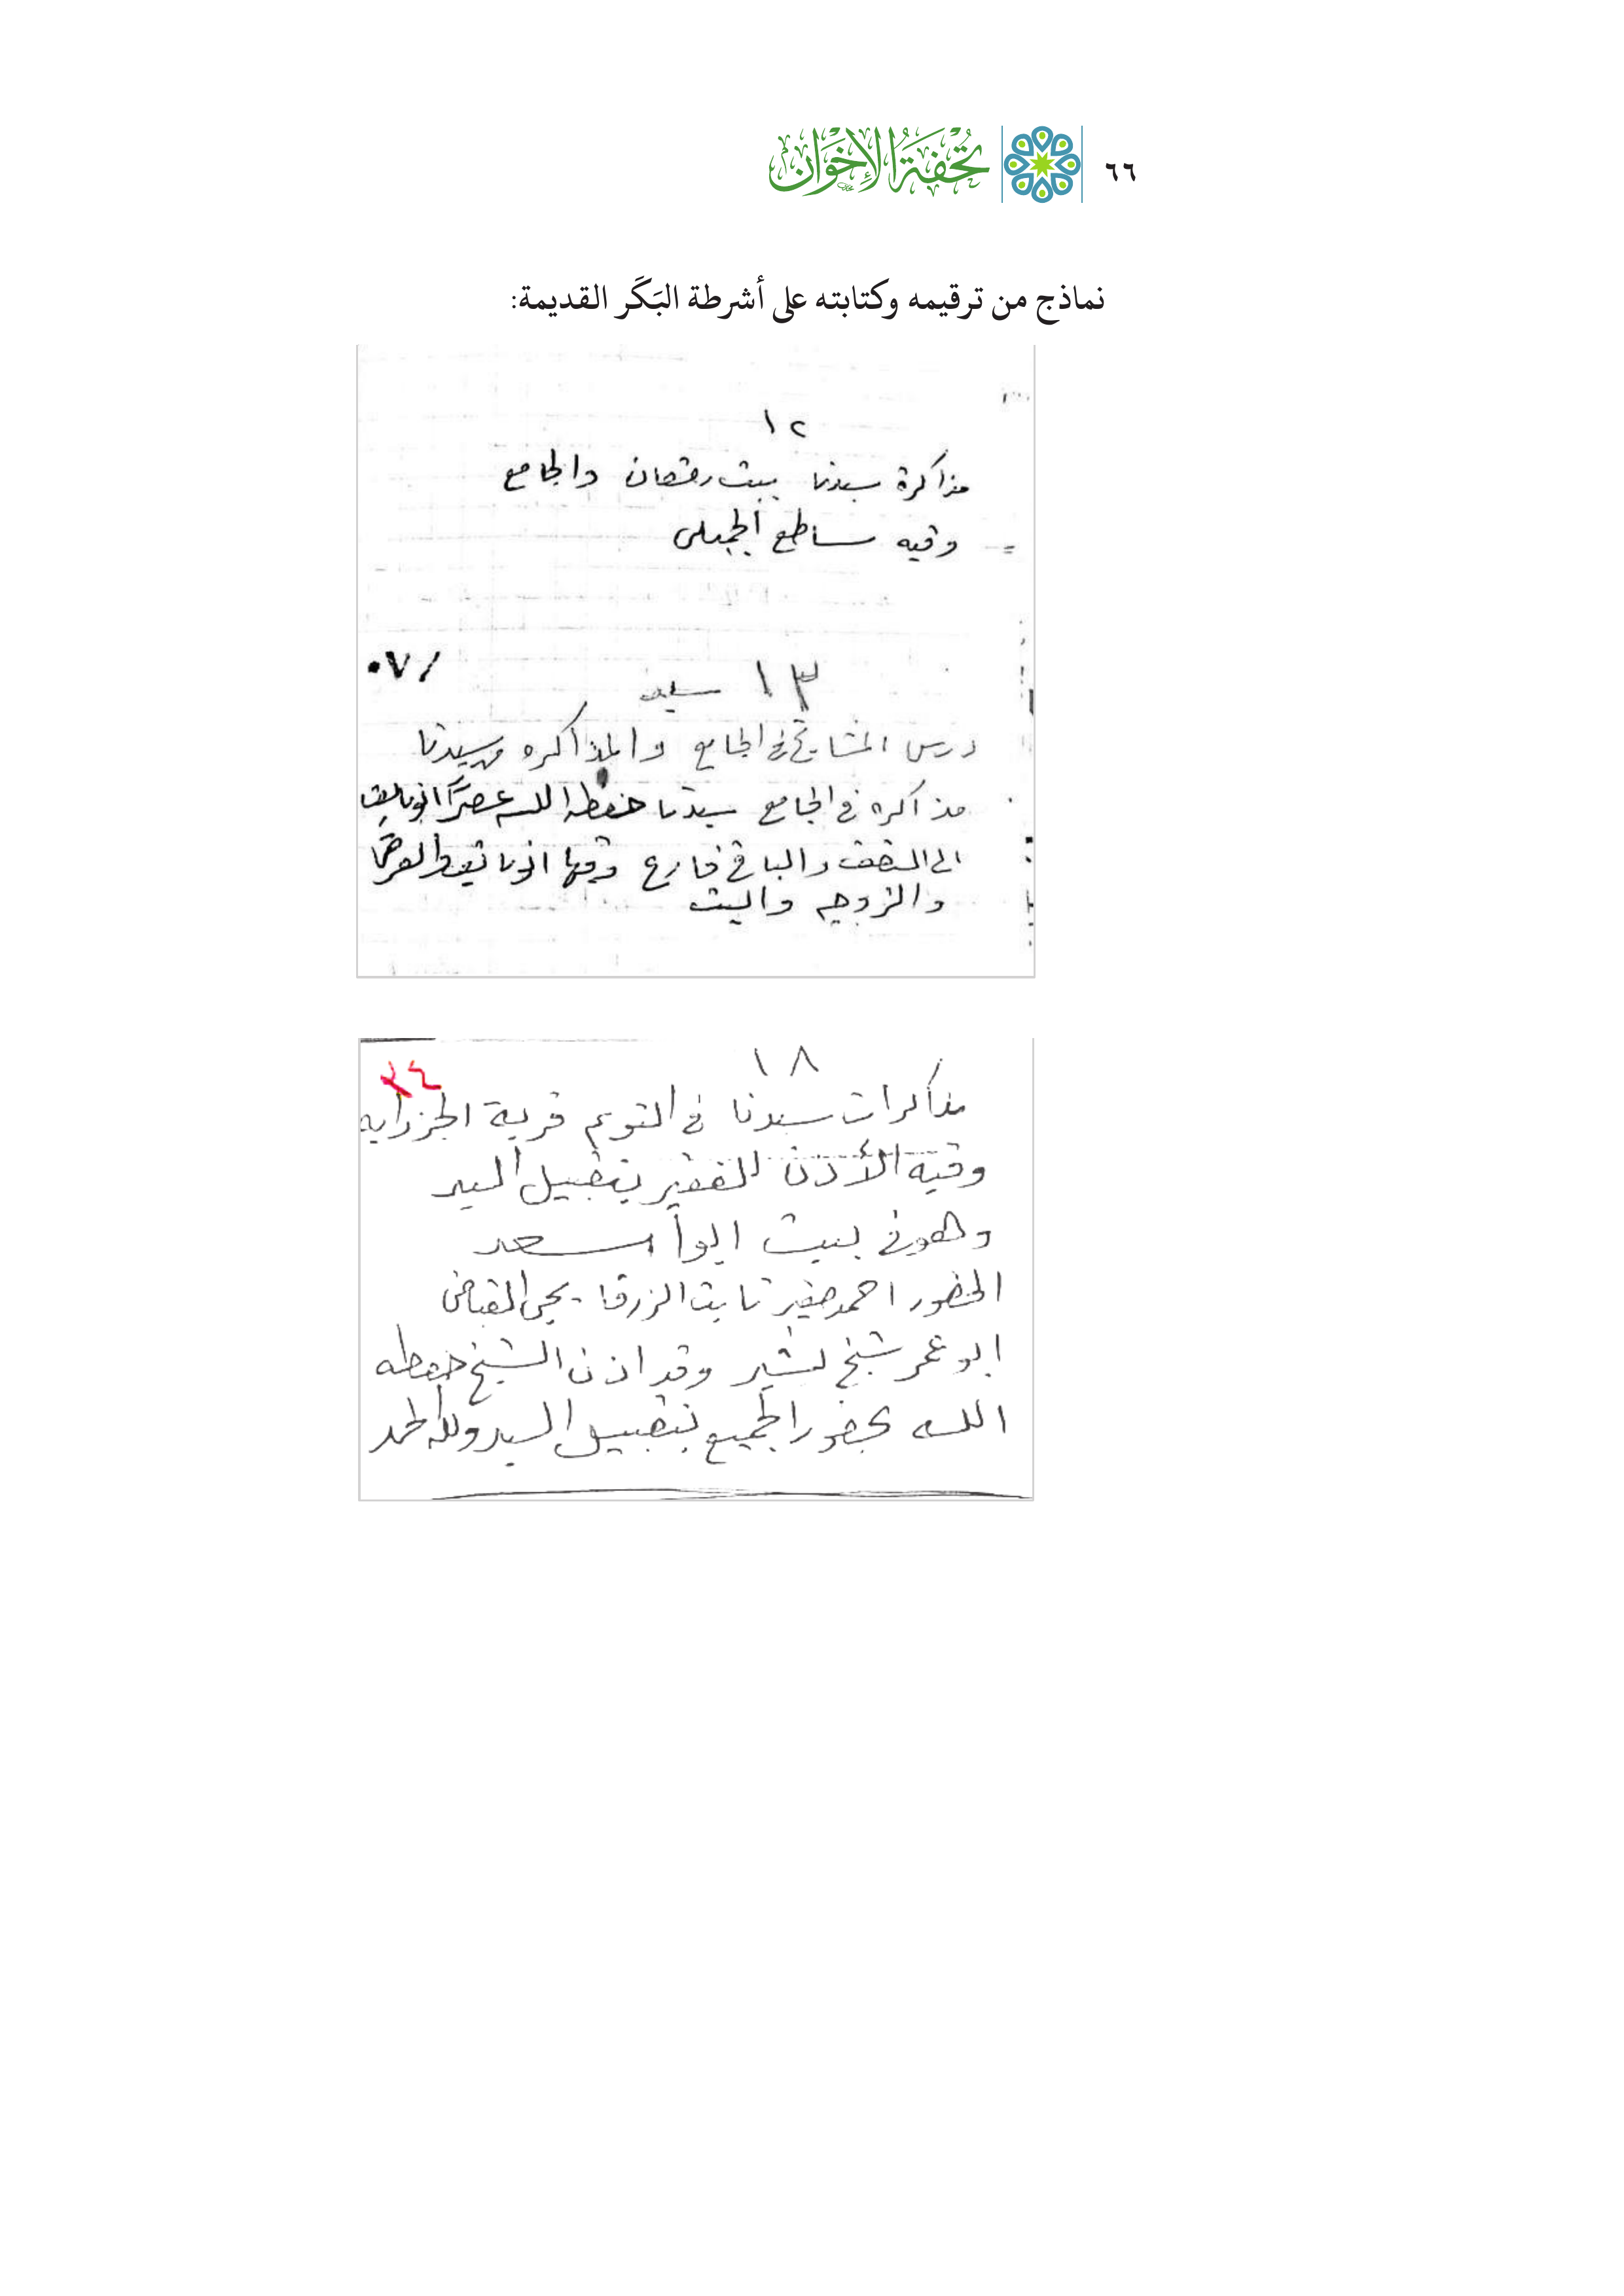 ٦٦
تُحْفَةُ الإِخْوَانِ
نماذج من ترقيمه وكتابته على أشرطة البَكَر القديمة:
١٢
مذاكرة سيدنا ببيت رمضان والجامع
وفيه ساطع الجميلي
٠٧/
١٣
درس المشايخ في الجامع والمذاكره سيدنا
مذاكره في الجامع سيدنا حفظه الله عصرًا
الى النصف والباقي فارغ وفيها
والزوجه والبيت
١٨
٢٤
مذاكرات سيدنا في التويم قرية الجزرايه
وفيه الأذن للفقير بتقبيل اليد
وهو في بيت ابو أسعد
الحضور احمد صغير ثابت الزرقا - يحي القباض
ابو عمر شيخ بشير وقد اذن الشيخ حفظه
الله بحضور الجميع بتقبيل اليد ولله الحمد